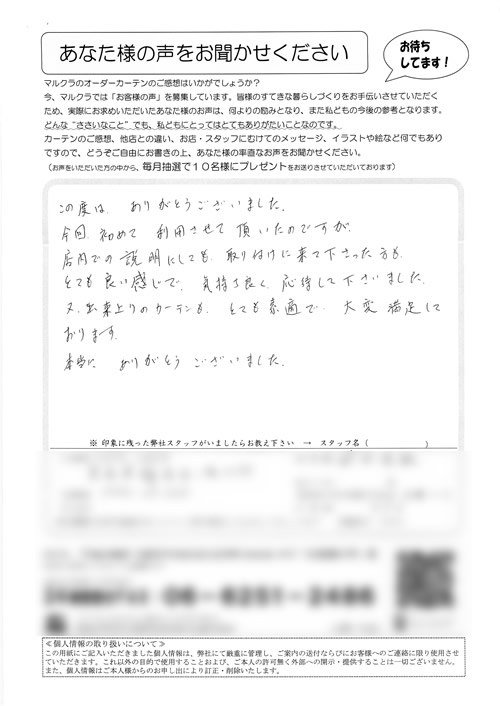 あなた様の声をお聞かせください
お待ち
してます!
マルクラのオーダーカーテンのご感想はいかがでしょうか?
今、マルクラでは「お客様の声」を募集しています。皆様のすてきな暮らしづくりをお手伝いさせていただく
ため、実際にお求めいただいたあなた様のお声は、何よりの励みとなり、また私どもの今後の参考となります。
どんな“ささいなこと”でも、私どもにとってはとてもありがたいことなのです。
カーテンのご感想、他店との違い、お店・スタッフにむけてのメッセージ、イラストや絵など何でもあり
ですので、どうぞご自由にお書きの上、あなた様の率直なお声をお聞かせください。
(お声をいただいた方の中から、毎月抽選で10名様にプレゼントをお送りさせていただいております)
この度は、ありがとうございました。
今回、初めて利用させて頂いたのですが、
店内での説明にしても、取り付けに来て下さった方も、
とても良い感じで、気持ち良く、応待して下さいました。
又、出来上りのカーテンも、とても素適で、大変満足して
おります。
本当に、ありがとうございました。
※ 印象に残った弊社スタッフがいましたらお教え下さい → スタッフ名 ( )
06-6251-2486
≪個人情報の取り扱いについて≫
この用紙にご記入いただきました個人情報は、弊社にて厳重に管理し、ご案内の送付ならびにお客様へのご連絡に限り使用させ
ていただきます。これ以外の目的で使用することおよび、ご本人の許可無く外部への開示・提供することは一切ございません。
また、個人情報はご本人様からのお申し出により訂正・削除いたします。